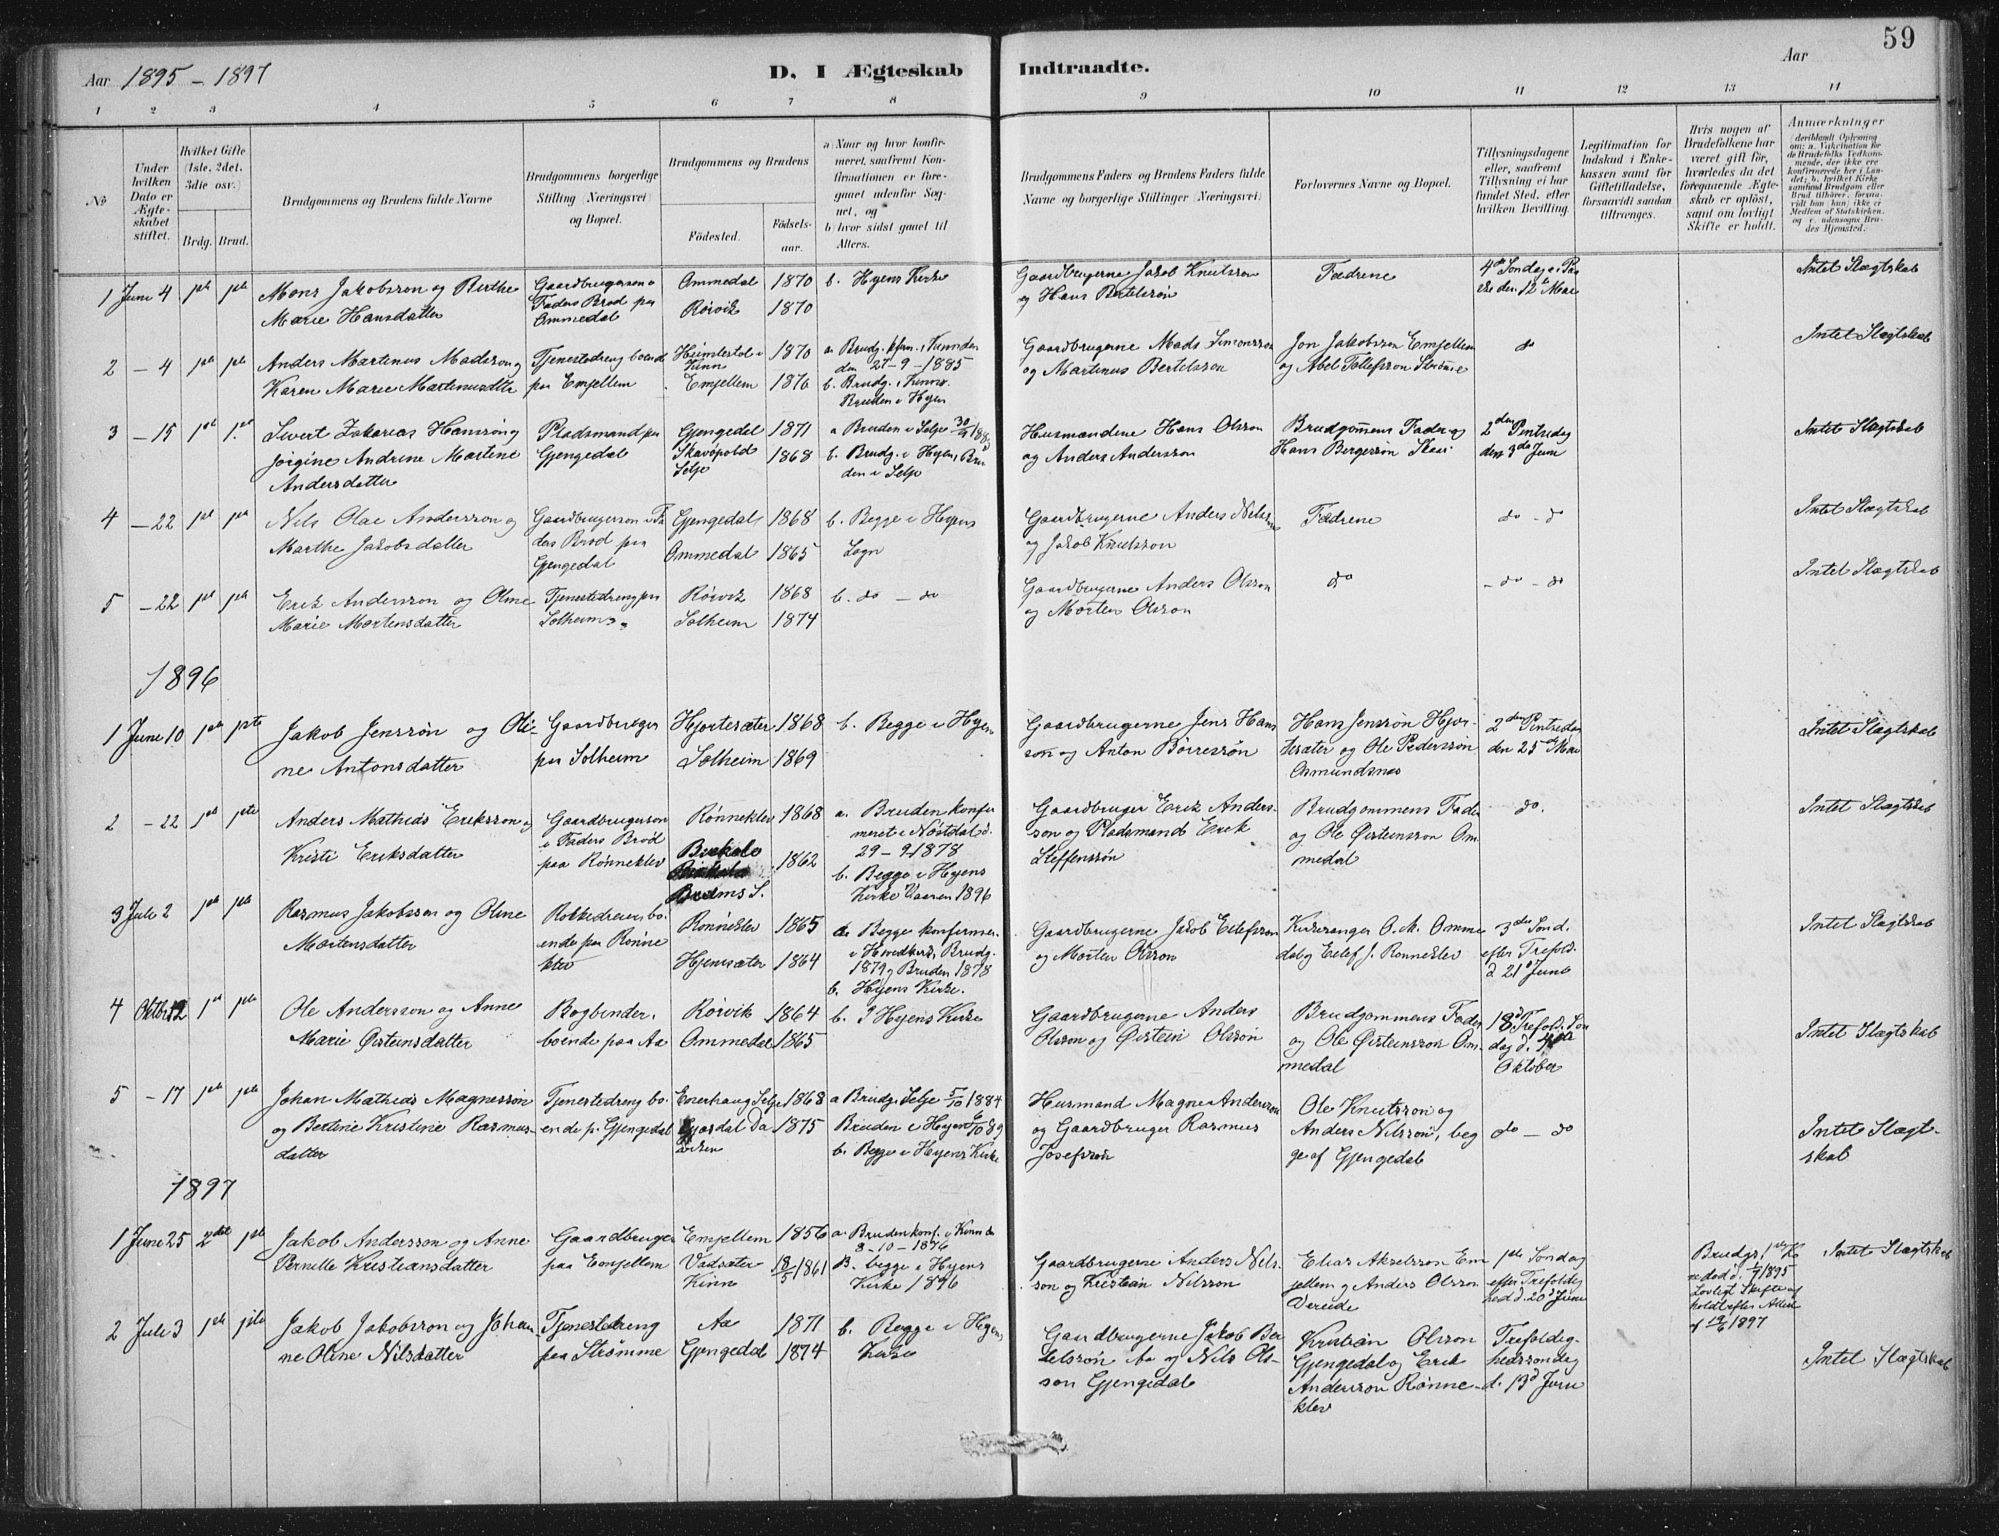 59
Aar 1895 - 1897
D. I Ægteskab Indtraadte.
Aar
1 2 3 4 5 6 7 8 9 10 11 12 13 14
No
Under hvilken Dato er Ægteskabet stiftet.
Hvilket Gifte (1ste, 2det, 3die osv.)
Brdg. Brud.
Brudgommens og Brudens fulde Navne
Brudgommens borgerlige Stilling (Næringsvei) og Bopæl.
Brudgommens og Brudens
Fødested.
Fødselsaar.
a) Naar og hvor konfirmeret, saafremt Konfirmationen er foregaaet udenfor Sognet, og
b) hvor sidst gaaet til Alters.
Brudgommens Faders og Brudens Faders fulde Navne og borgerlige Stillinger (Næringsvei)
Forlovernes Navne og Bopæl.
Tillysningsdagene eller, saafremt Tillysning ei har fundet Sted, efter hvilken Bevilling.
Legitimation for Indskud i Enkekassen samt for Giftetilladelse, forsaavidt saadan tiltrænges.
Hvis nogen af Brudefolkene har været gift før, hvorledes da det foregaaende Ægteskab er opløst, samt om lovligt Skifte er holdt.
Anmærkninger
1 June 4 1ste 1ste
Mons Jakobssøn og Berthe
Marie Hansdatter
Gaardbrugerson i
Faders Brød paa
Ommedal
Ommedal 1870
Rørvik 1870
b. Hyens Kirke
Gaardbrugerne Jakob Knutssøn
og Hans Bertelssøn
Fædrene
4de Søndag e. Paa
ske den 12te Mai
Intet Slægtskab
2 - 4 1ste 1ste
Anders Martinus Madssøn og
Karen Marie Martinusdtr
Tjenestedreng boende
paa Emjellem
Kinn 1870
Emjellem 1876
a. Brudg. kfm. i Kinn den
den 27-9-1885
b. Brudg. i Kinn.
Bruden i Hyen
Gaardbrugerne Mads Simonssøn
og Martinus Bertelssøn
Jon Jakobssøn Emjellem
og Abel Tollefssøn Strømme
do
Intet Slægtskab
3 - 15 1ste 1ste
Sivert Zakarias Hanssøn og
Jørgine Andrine Martine
Andersdatter
Pladsmand paa
Gjengedal
Gjengedal 1871
Skavøpold 1868
Selje
a Bruden i Selje 30/9 1883
b. Brudg. i Hyen, Bru
den i Selje
Husmændene Hans Olsson
og Anders Andersson
Brudgommens Fader og
Hans Bergersøn Skaar
2den Pintsedag
den 3die Juni
Intet Slægtskab
4 - 22 1ste 1ste
Nils Olai Andersson og
Marthe Jakobsdatter
Gaardbrugerson i Fa
ders Brød paa
Gjengedal
Gjengedal 1868
Ommedal 1865
b. Begge i Hyens
Sogn
Gaardbrugerne Anders Nilsson
og Jakob Knutsson
Fædrene
do - do
Intet Slægtskab
5 - 22 1ste 1ste
Erik Andersson og Oline
Marie Mortensdatter
Tjenestedreng paa
Solheim
Rørvik 1868
Solheim 1874
b. do - do
Gaardbrugerne Anders Olsson
og Morten Olsson
do
- do - do
Intet Slægtskab
1896
1 June 10 1ste 1ste
Jakob Jenssøn og Oli-
ne Antonsdatter
Gaardbruger
paa Solheim
Hjortesæter 1868
Solheim 1869
b. Begge i Hyen
Gaardbrugerne Jens Hans
søn og Anton Børressøn
Hans Jenssøn Hjor-
tesæter og Ole Pederssøn
Osmundsnes
2den Pintsedag
den 25de Mai
Intet Slægtskab
2 - 22 1ste 1ste
Anders Mathias Eriksson og
Kristi Eriksdatter
Gaardbrugerson
i Faders Brød
paa Rønneklev
Rønneklev 1868
1862
Bræms S.
a. Bruden konfir
meret i Nøstdal d.
29-9 1878
b. Begge i Hyens
Kirke Vaaren 1896
Gaardbruger Erik Anders-
søn og Pladsmand Erik
Steffenssøn
Brudgommens Fader
og Ole Østensson Om
medal
do.
Intet Slægtskab
3 Juli 2 1ste 1ste
Rasmus Jakobsson og Oline
Mortensdatter
Rokkedreier bo-
ende paa Rønne
klev
Rønneklev 1865
Hjemsæter 1864
a. Begge konfirmer
Brudg.
1879 og Bruden 1878
b. Hyens Kirke.
Gaardbrugerne Jakob Eilefsson
og Morten Olsson
Kirkesanger O. A. Omme
dal og Eilef J. Rønneklev
3die Sønd.
efter Trefold.
d. 21de June
Intet Slægtskab
4 Oktbr 12 1ste 1ste
Ole Andersson og Anne
Marie Østensdatter
Bogbinder,
boende paa Aa
Rørvik 1864
Ommedal 1865
b. I Hyens Kirke
Gaardbrugerne Anders
Olsson og Østein Olsson
Brudgommens Fader
og Ole Østeinsson Om-
medal
18de Trefold. Søn
dag d. 4de
Oktober
Intet Slægtskab
5 - 17 1ste 1ste
Johan Mathias Magnessøn
og Bertine Kristine Rasmus-
datter
Tjenestedreng bo-
ende p. Gjengedal
Enerhaug Selje 1868
1875
a Brudg. Selje 5/10 1884
Bruden i Hyen 6/10 89
b. Begge i Hyens Kirke
Husmand Magne Andersson
og Gaardbruger Rasmus
Josefssøn
Ole Knutsson og
Anders Nilsson, beg
ge af Gjengedal
do - do
Intet Slægt-
skab
1897
1 June 25 2det 1ste
Jakob Andersson og Anne
Pernille Kristiansdatter
Gaardbruger
paa Emjellem
Emjellem 1856
Vadsæter 18/5 1861
Kinn
a Bruden konf. i Kinn den
8-10-1876
B. begge i Hyens
Kirke 1896
Gaardbrugerne Anders Nils-
son og Kristian Nilsson
Elias Akselsson Em
jellem og Anders Olsson
Verude
1ste Søndag
efter Trefoldig
hed d. 20de June
Brudgs 1ste Ko
ne død d. 1895
Lovligt Skifte
holdt efter
af 19/6 1897
Intet Slægtskab
2 Juli 3 1ste 1ste
Jakob Jakobsson og Johan-
ne Oline Nilsdatter
Tjenestedreng
paa Strømme
Aa 1871
Gjengedal 1874
b. Begge i Hyens
Kirke
Gaardbrugerne Jakob Ber
telssøn Aa og Nils Ols-
son Gjengedal
Kristian Olsson
Gjengedal og Erik
Andersson Rønne-
klev
Trefoldig-
hedssøndag
d. 13de Juni
Intet Slægtskab